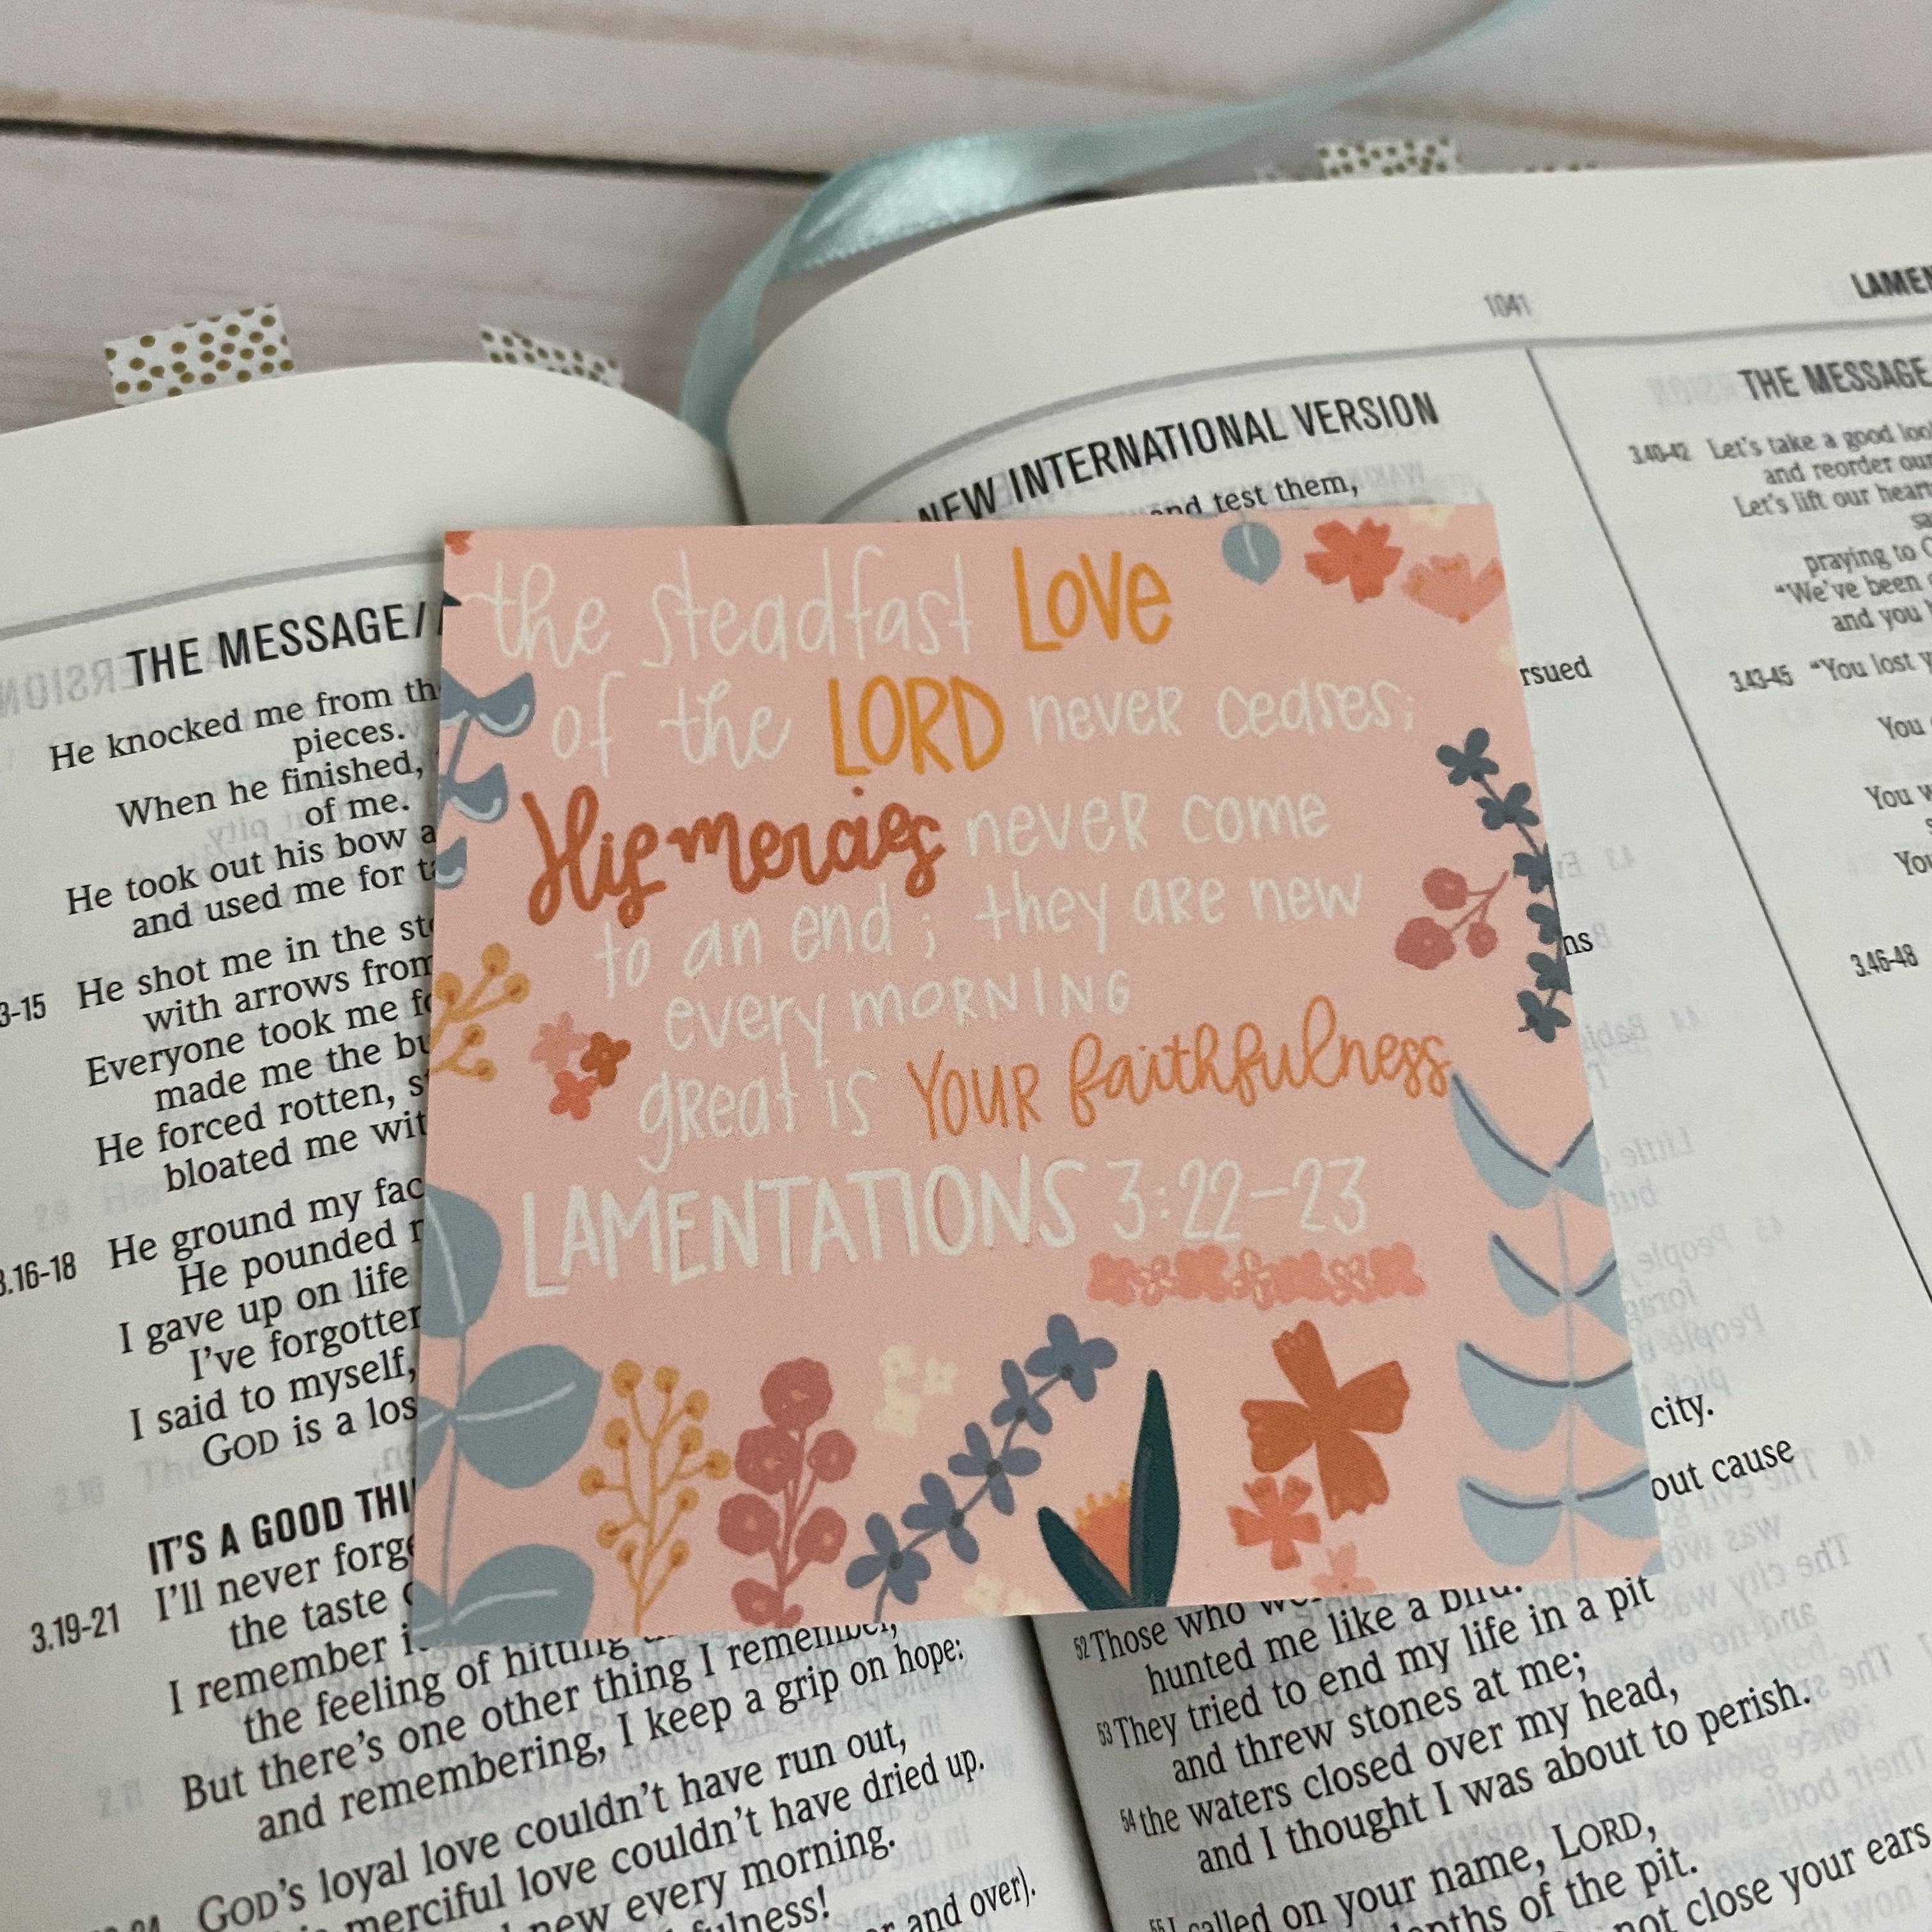 THE MESSAGE/
He knocked me from th
pieces.
When he finished,
of me.
He took out his bow a
and used me for
3-15 He shot me in the
with arrows from
Everyone took me
made me the
He forced rotten,
bloated me
3.16-18 He ground my
He pounded
I gave up on life
I've
I said to myself,
GOD is a
IT'S A GOOD
3.19-21 I'll never
the taste
I remember
the feeling of hitting
But there's one other thing I remember,
and remembering, I keep a grip on hope:
GOD'S loyal love couldn't have run out,
merciful love couldn't have dried up.
new every morning.
and over).
the steadfast LOVE
of the LORD never ceases;
His mercies never come
to an end; they are new
every MORNING
great is YOUR faithfulness
LAMENTATIONS 3:22-23
1041
NEW INTERNATIONAL VERSION
and test them,
rsued
city.
out cause
52 Those who
hunted me like a bird.
53 They tried to end my life in a pit
and threw stones at me;
54 the waters closed over my head,
and I thought I was about to perish.
55 I called on your name, LORD,
of the pit.
not close your ears
THE MESSAGE
3.40-42 Let's take a good
and reorder our
Let's lift our
praying to
"We've been
and you
3.43-45 "You lost
You
You
You
3.46-48